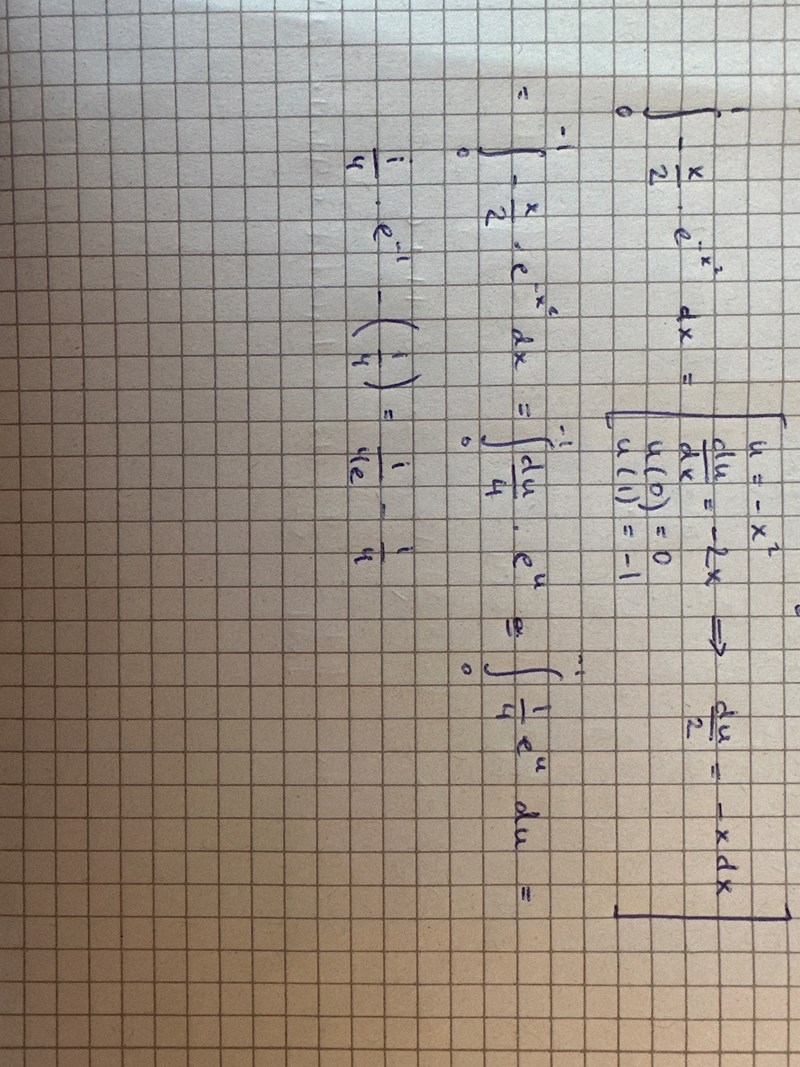 ∫₀¹ -x/2 · e^(-x²) dx = [ u = -x²
du/dx = -2x ⇒ du/2 = -x dx
u(0) = 0
u(1) = -1 ]
= ∫₀⁻¹ -x/2 · e^(-x²) dx = ∫₀⁻¹ du/4 · e^u = ∫₀⁻¹ 1/4 e^u du =
1/4 · e^(-1) - (1/4) = 1/4e - 1/4